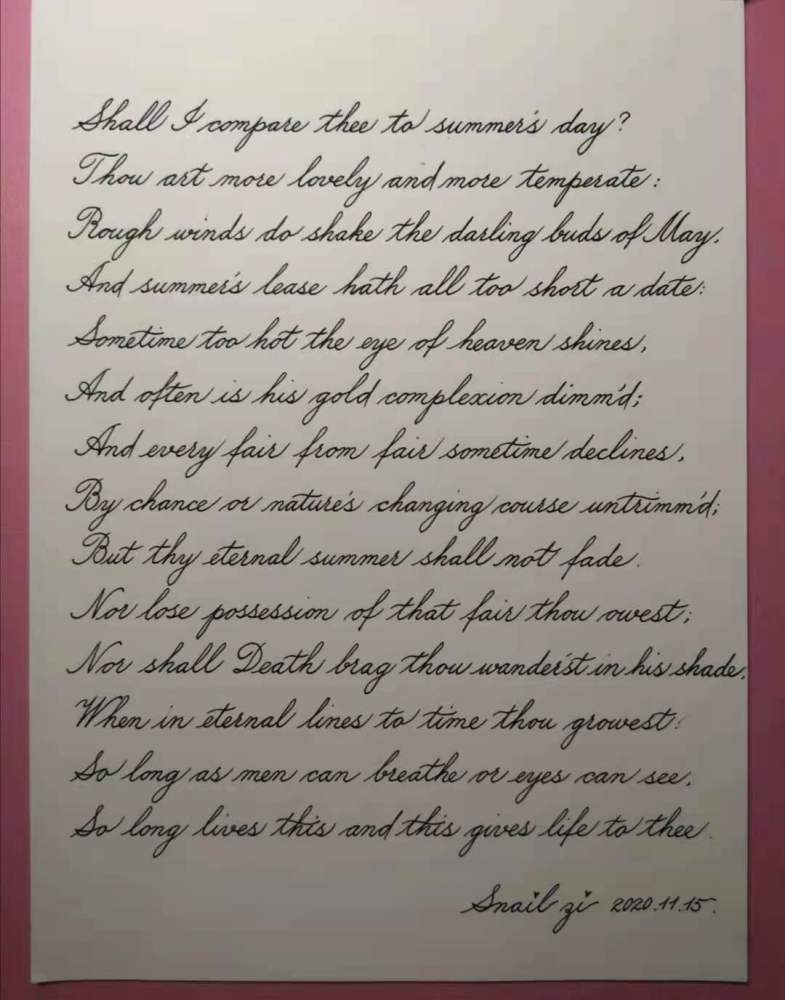 Shall I compare thee to summer's day?
Thou art more lovely and more temperate:
Rough winds do shake the darling buds of May,
And summer's lease hath all too short a date:
Sometime too hot the eye of heaven shines,
And often is his gold complexion dimm'd;
And every fair from fair sometime declines,
By chance or nature's changing course untrimm'd;
But thy eternal summer shall not fade.
Nor lose possession of that fair thou owest;
Nor shall Death brag thou wander'st in his shade,
When in eternal lines to time thou growest:
So long as men can breathe or eyes can see,
So long lives this and this gives life to thee.
Snail zi 2020.11.15.